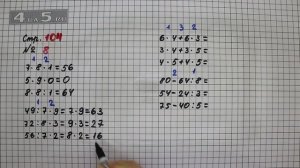 4 5.ru
Стр. 104
№ 8
1 2
7·8·1=56
5·9·0=0
8·8·1=64
1 2
49:7·9=7·9=63
72:8·3=9·3=27
56:7·2=8·2=16
1 3 2
6·4+6·3=
3·4+3·5=
4·5+4·5=
2 1
80-64:8=
54-24:3=
75-40:5=